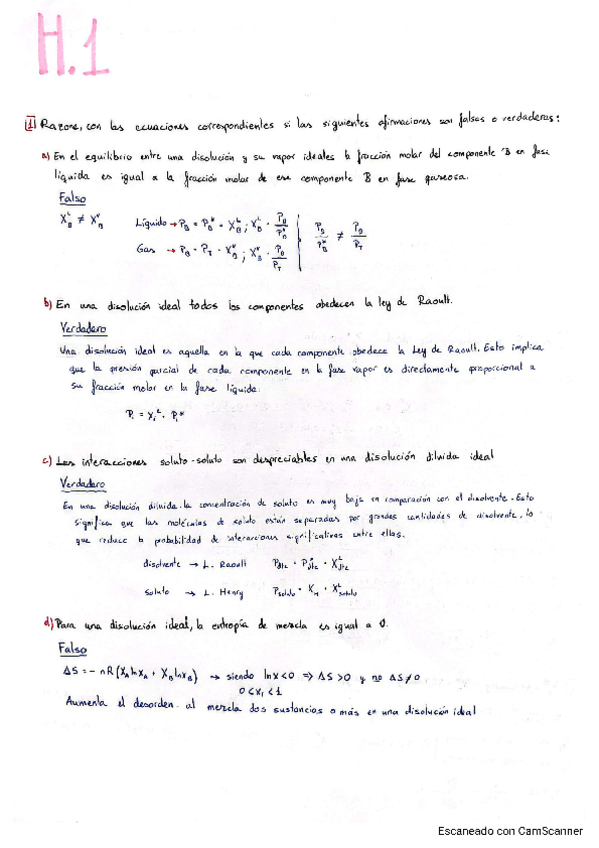 H.1
1) Razone, con las ecuaciones correspondientes si las siguientes afirmaciones son falsas o verdaderas:
a) En el equilibrio entre una disolución y su vapor ideales la fracción molar del componente B en fase
líquida es igual a la fracción molar de ese componente B en fase gaseosa.
Falso
X_B^L ≠ X_B^v
Líquido → P_B = P_B* · X_B^L ; X_B^L = P_B / P_B*
Gas → P_B = P_T · X_B^v ; X_B^v = P_B / P_T
P_B / P_B* ≠ P_B / P_T
b) En una disolución ideal todos los componentes obedecen la ley de Raoult.
Verdadero
Una disolución ideal es aquella en la que cada componente obedece la Ley de Raoult. Esto implica
que la presión parcial de cada componente en la fase vapor es directamente proporcional a
su fracción molar en la fase líquida.
P_i = X_i^L · P_i*
c) Las interacciones soluto-soluto son despreciables en una disolución diluida ideal
Verdadero
En una disolución diluida la concentración de soluto es muy baja en comparación con el disolvente. Esto
significa que las moléculas de soluto están separadas por grandes cantidades de disolvente, lo
que reduce la probabilidad de interacciones significativas entre ellas.
disolvente → L. Raoult P_dte = P*_dte · X^L_dte
soluto → L. Henry P_soluto = K_H · X^L_soluto
d) Para una disolución ideal, la entropía de mezcla es igual a 0.
Falso
ΔS = - nR (X_A ln X_A + X_B ln X_B) → siendo ln x < 0 ⇒ ΔS > 0 y no ΔS ≠ 0
0 < X_i < 1
Aumenta el desorden al mezcla dos sustancias o más en una disolución ideal
Escaneado con CamScanner